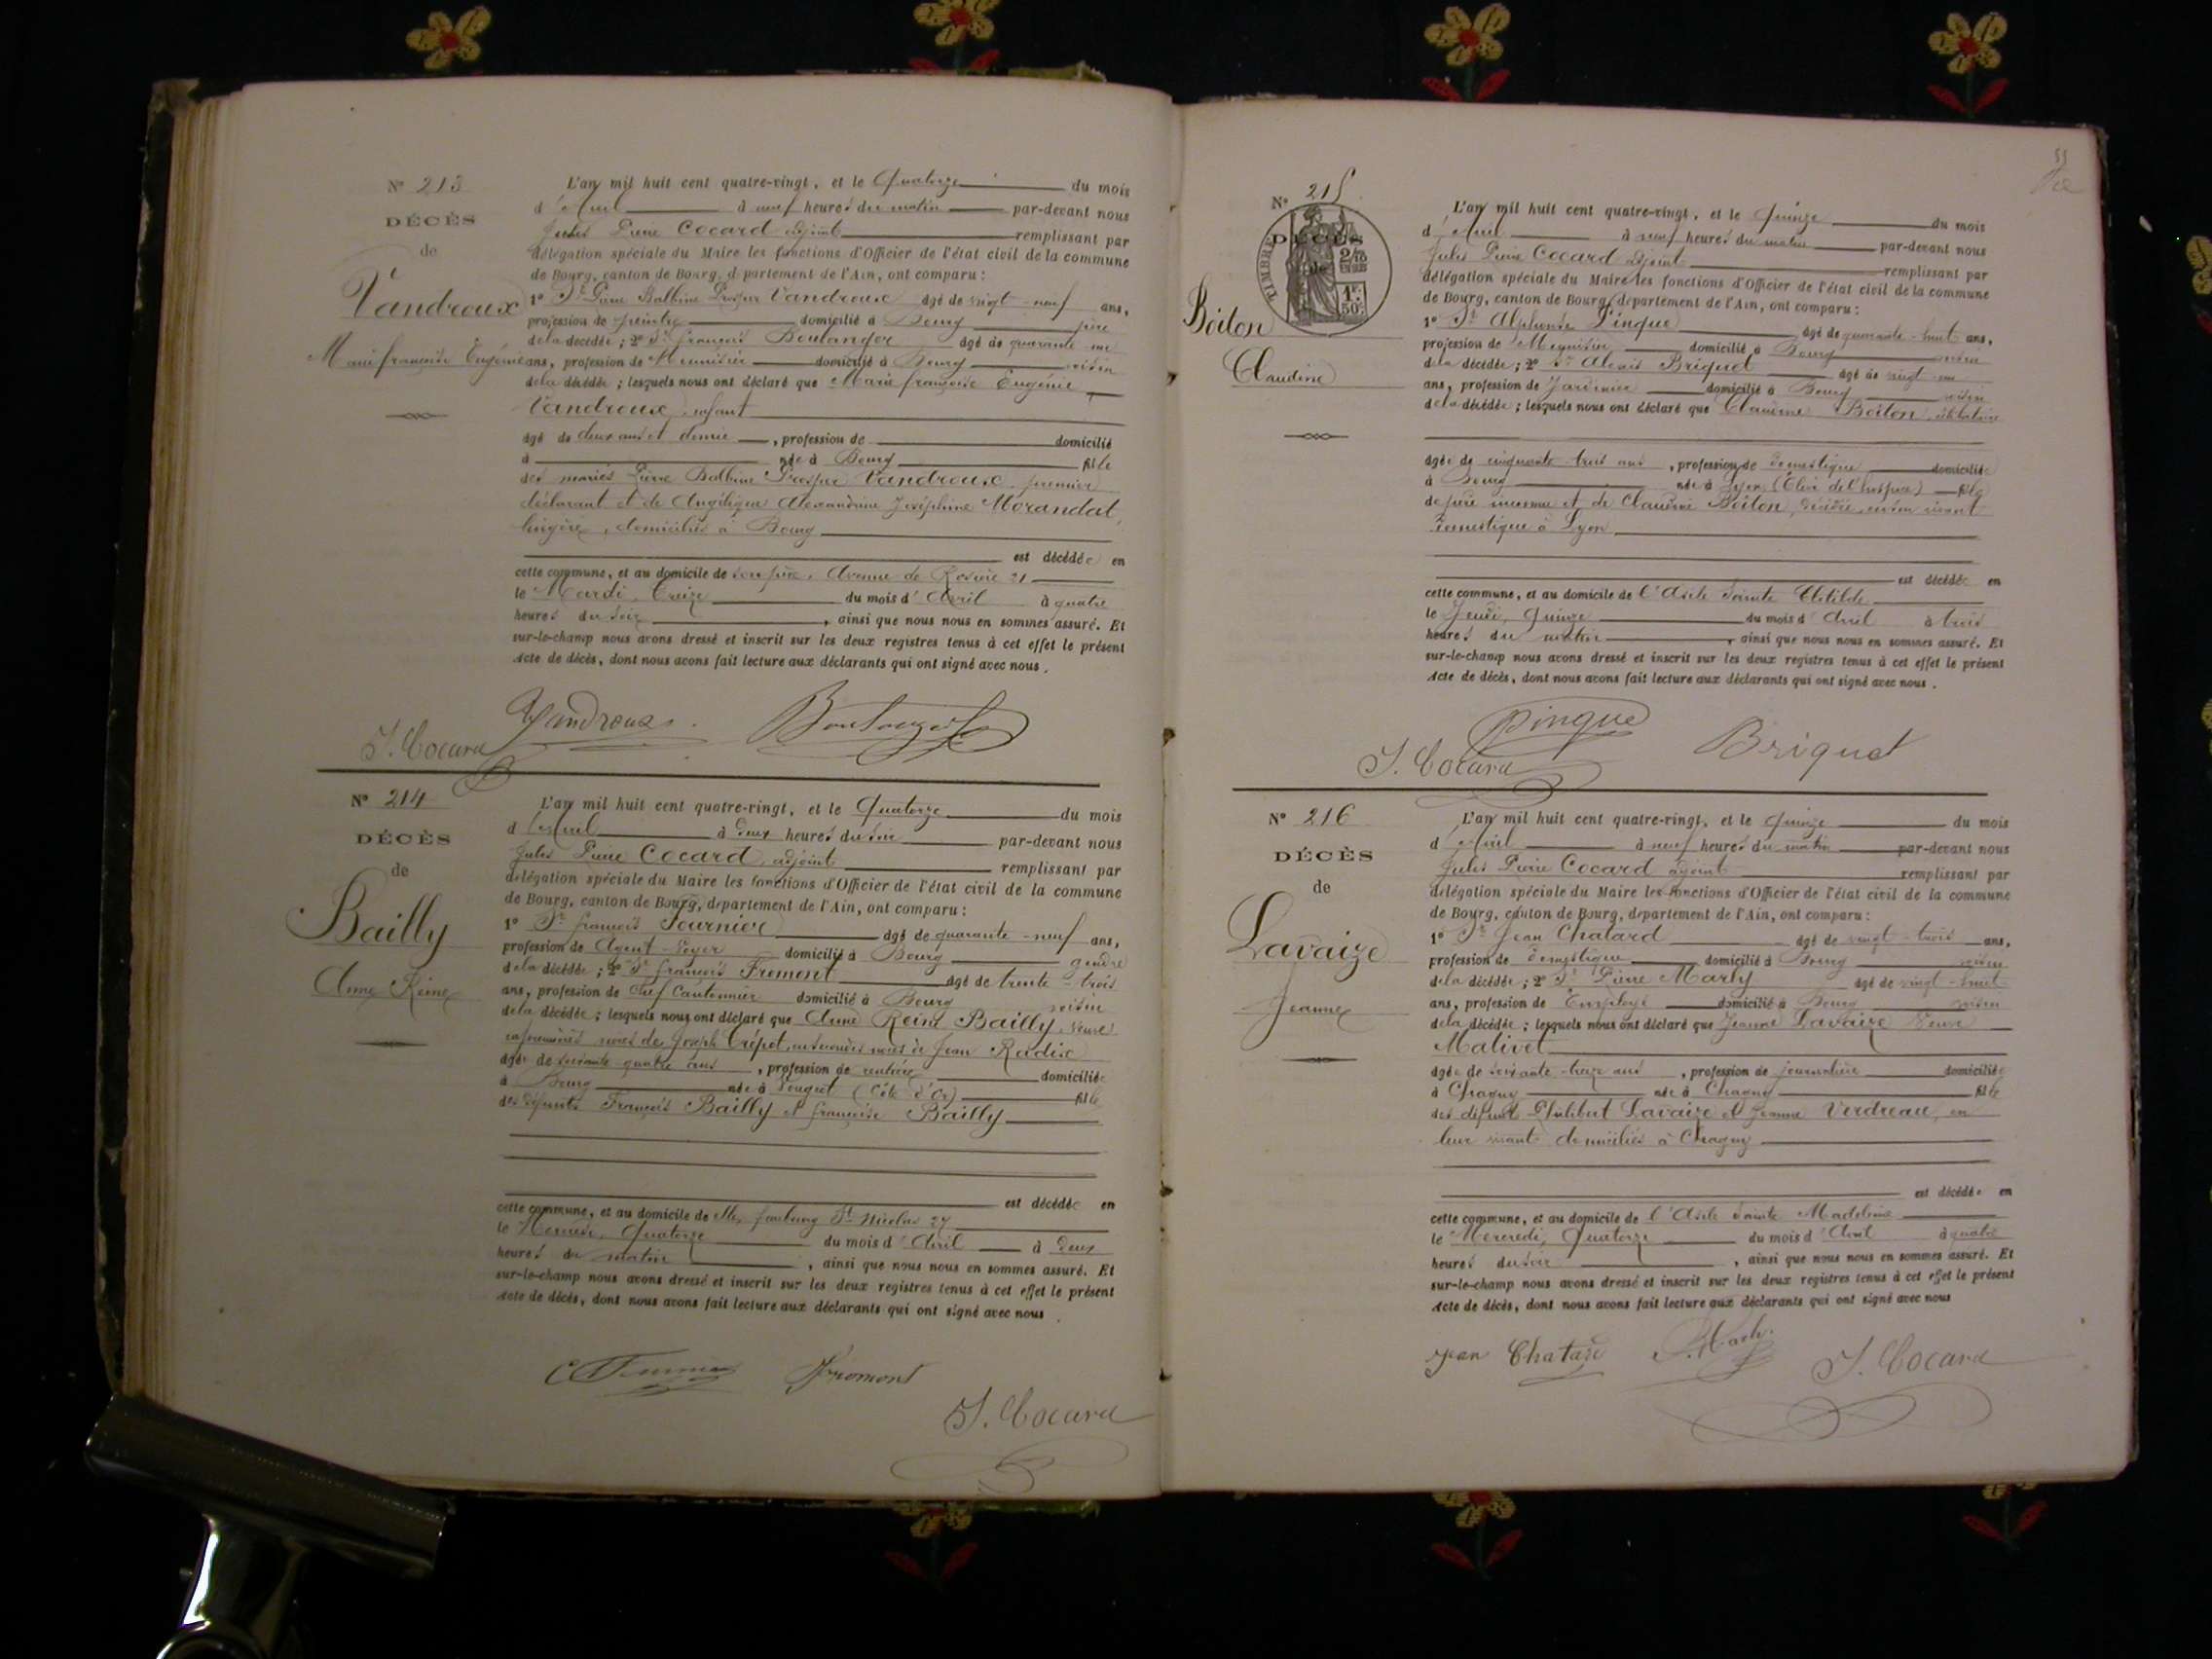 N° 213
DÉCÈS
de
Vandroux
Marie françoise Eugénie
L'an mil huit cent quatre-vingt, et le Quatorze du mois
d'Avril à neuf heures du matin par-devant nous
Jules Pierre Cocard adjoint remplissant par
délégation spéciale du Maire les fonctions d'Officier de l'état civil de la commune
de Bourg, canton de Bourg, département de l'Ain, ont comparu :
1° Sr Pierre Balbine Prosper Vandroux âgé de vingt-neuf ans,
profession de peintre domicilié à Bourg père
de la décédée ; 2° Sr françois Boulanger âgé de quarante un
ans, profession de Menuisier domicilié à Bourg voisin
de la décédée ; lesquels nous ont déclaré que Marie françoise Eugénie
Vandroux, enfant
âgé de deux ans et demie, profession de domicilié
à née à Bourg fille
des mariés Pierre Balbine Prosper Vandroux premier
déclarant et de Angélique Alexandrine Joséphine Morandat,
lingère, domiciliés à Bourg
est décédée en
cette commune, et au domicile de son père, Avenue de Rosière 21
le Mardi, treize du mois d'Avril à quatre
heures du soir, ainsi que nous nous en sommes assuré. Et
sur-le-champ nous avons dressé et inscrit sur les deux registres tenus à cet effet le présent
Acte de décès, dont nous avons fait lecture aux déclarants qui ont signé avec nous.
Vandroux Boulanger
J. Cocard
N° 214
DÉCÈS
de
Bailly
Anne Reine
L'an mil huit cent quatre-vingt, et le Quatorze du mois
d'Avril à deux heures du soir par-devant nous
Jules Pierre Cocard, adjoint remplissant par
délégation spéciale du Maire les fonctions d'Officier de l'état civil de la commune
de Bourg, canton de Bourg, département de l'Ain, ont comparu :
1° Sr françois Fournier âgé de quarante-neuf ans,
profession de Agent-Voyer domicilié à Bourg gendre
de la décédée ; 2° Sr françois Fremont âgé de trente-trois
ans, profession de Chef Cantonnier domicilié à Bourg voisin
de la décédée ; lesquels nous ont déclaré que Anne Reine Bailly, veuve
en premières noces de Joseph Crépet, en secondes noces de Jean Radix
âgée de soixante quatre ans, profession de rentière domiciliée
à Bourg née à Vougeot (Côte d'Or) fille
des défunts François Bailly et françoise Bailly
est décédée en
cette commune, et au domicile de elle, faubourg St Nicolas 27
le Mercredi, Quatorze du mois d'Avril à deux
heures du matin, ainsi que nous nous en sommes assuré. Et
sur-le-champ nous avons dressé et inscrit sur les deux registres tenus à cet effet le présent
Acte de décès, dont nous avons fait lecture aux déclarants qui ont signé avec nous.
Fournier Fromont
J. Cocard
N° 215
DÉCÈS
de
TIMBRE
2/10 EN SUS
1F. 50c.
Boiton
Claudine
L'an mil huit cent quatre-vingt, et le Quinze du mois
d'Avril à neuf heures du matin par-devant nous
Jules Pierre Cocard adjoint remplissant par
délégation spéciale du Maire les fonctions d'Officier de l'état civil de la commune
de Bourg, canton de Bourg, département de l'Ain, ont comparu :
1° Sr Alphonse Pingue âgé de quarante-huit ans,
profession de Menuisier domicilié à Bourg voisin
de la décédée ; 2° Sr Alexis Briquet âgé de vingt-un
ans, profession de Jardinier domicilié à Bourg voisin
de la décédée ; lesquels nous ont déclaré que Claudine Boiton célibataire
âgée de cinquante-trois ans, profession de domestique domiciliée
à Bourg née à Lyon (Elève de l'hospice) fille
de père inconnu et de Claudine Boiton, décédée, en son vivant
domestique à Lyon
est décédée en
cette commune, et au domicile de l'Asile Sainte Clotilde
le Jeudi, quinze du mois d'Avril à trois
heures du matin, ainsi que nous nous en sommes assuré. Et
sur-le-champ nous avons dressé et inscrit sur les deux registres tenus à cet effet le présent
Acte de décès, dont nous avons fait lecture aux déclarants qui ont signé avec nous.
Pingue Briquet
J. Cocard
N° 216
DÉCÈS
de
Lavaize
Jeanne
L'an mil huit cent quatre-vingt, et le Quinze du mois
d'Avril à neuf heures du matin par-devant nous
Jules Pierre Cocard adjoint remplissant par
délégation spéciale du Maire les fonctions d'Officier de l'état civil de la commune
de Bourg, canton de Bourg, département de l'Ain, ont comparu :
1° Sr Jean Chatard âgé de vingt-trois ans,
profession de domestique domicilié à Bourg voisin
de la décédée ; 2° Sr Pierre Marly âgé de vingt-huit
ans, profession de Employé domicilié à Bourg voisin
de la décédée ; lesquels nous ont déclaré que Jeanne Lavaize Veuve
Mativet
âgée de soixante-treize ans, profession de journalière domiciliée
à Chagny née à Chagny fille
des défunts Philibert Lavaize et Jeanne Verdreau, en
leur vivant domiciliés à Chagny
est décédée en
cette commune, et au domicile de l'Asile Sainte Madeleine
le Mercredi, Quatorze du mois d'Avril à quatre
heures du soir, ainsi que nous nous en sommes assuré. Et
sur-le-champ nous avons dressé et inscrit sur les deux registres tenus à cet effet le présent
Acte de décès, dont nous avons fait lecture aux déclarants qui ont signé avec nous
Jean Chatard
J. Cocard